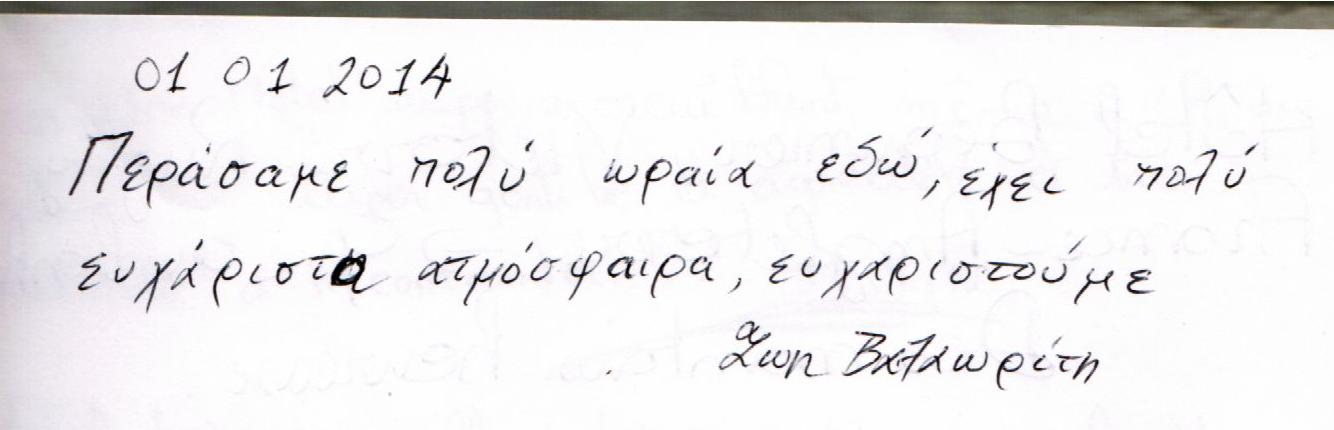 01 01 2014
Περάσαμε πολύ ωραία εδώ, έχει πολύ
ευχάριστα ατμόσφαιρα, ευχαριστούμε
Ζωη